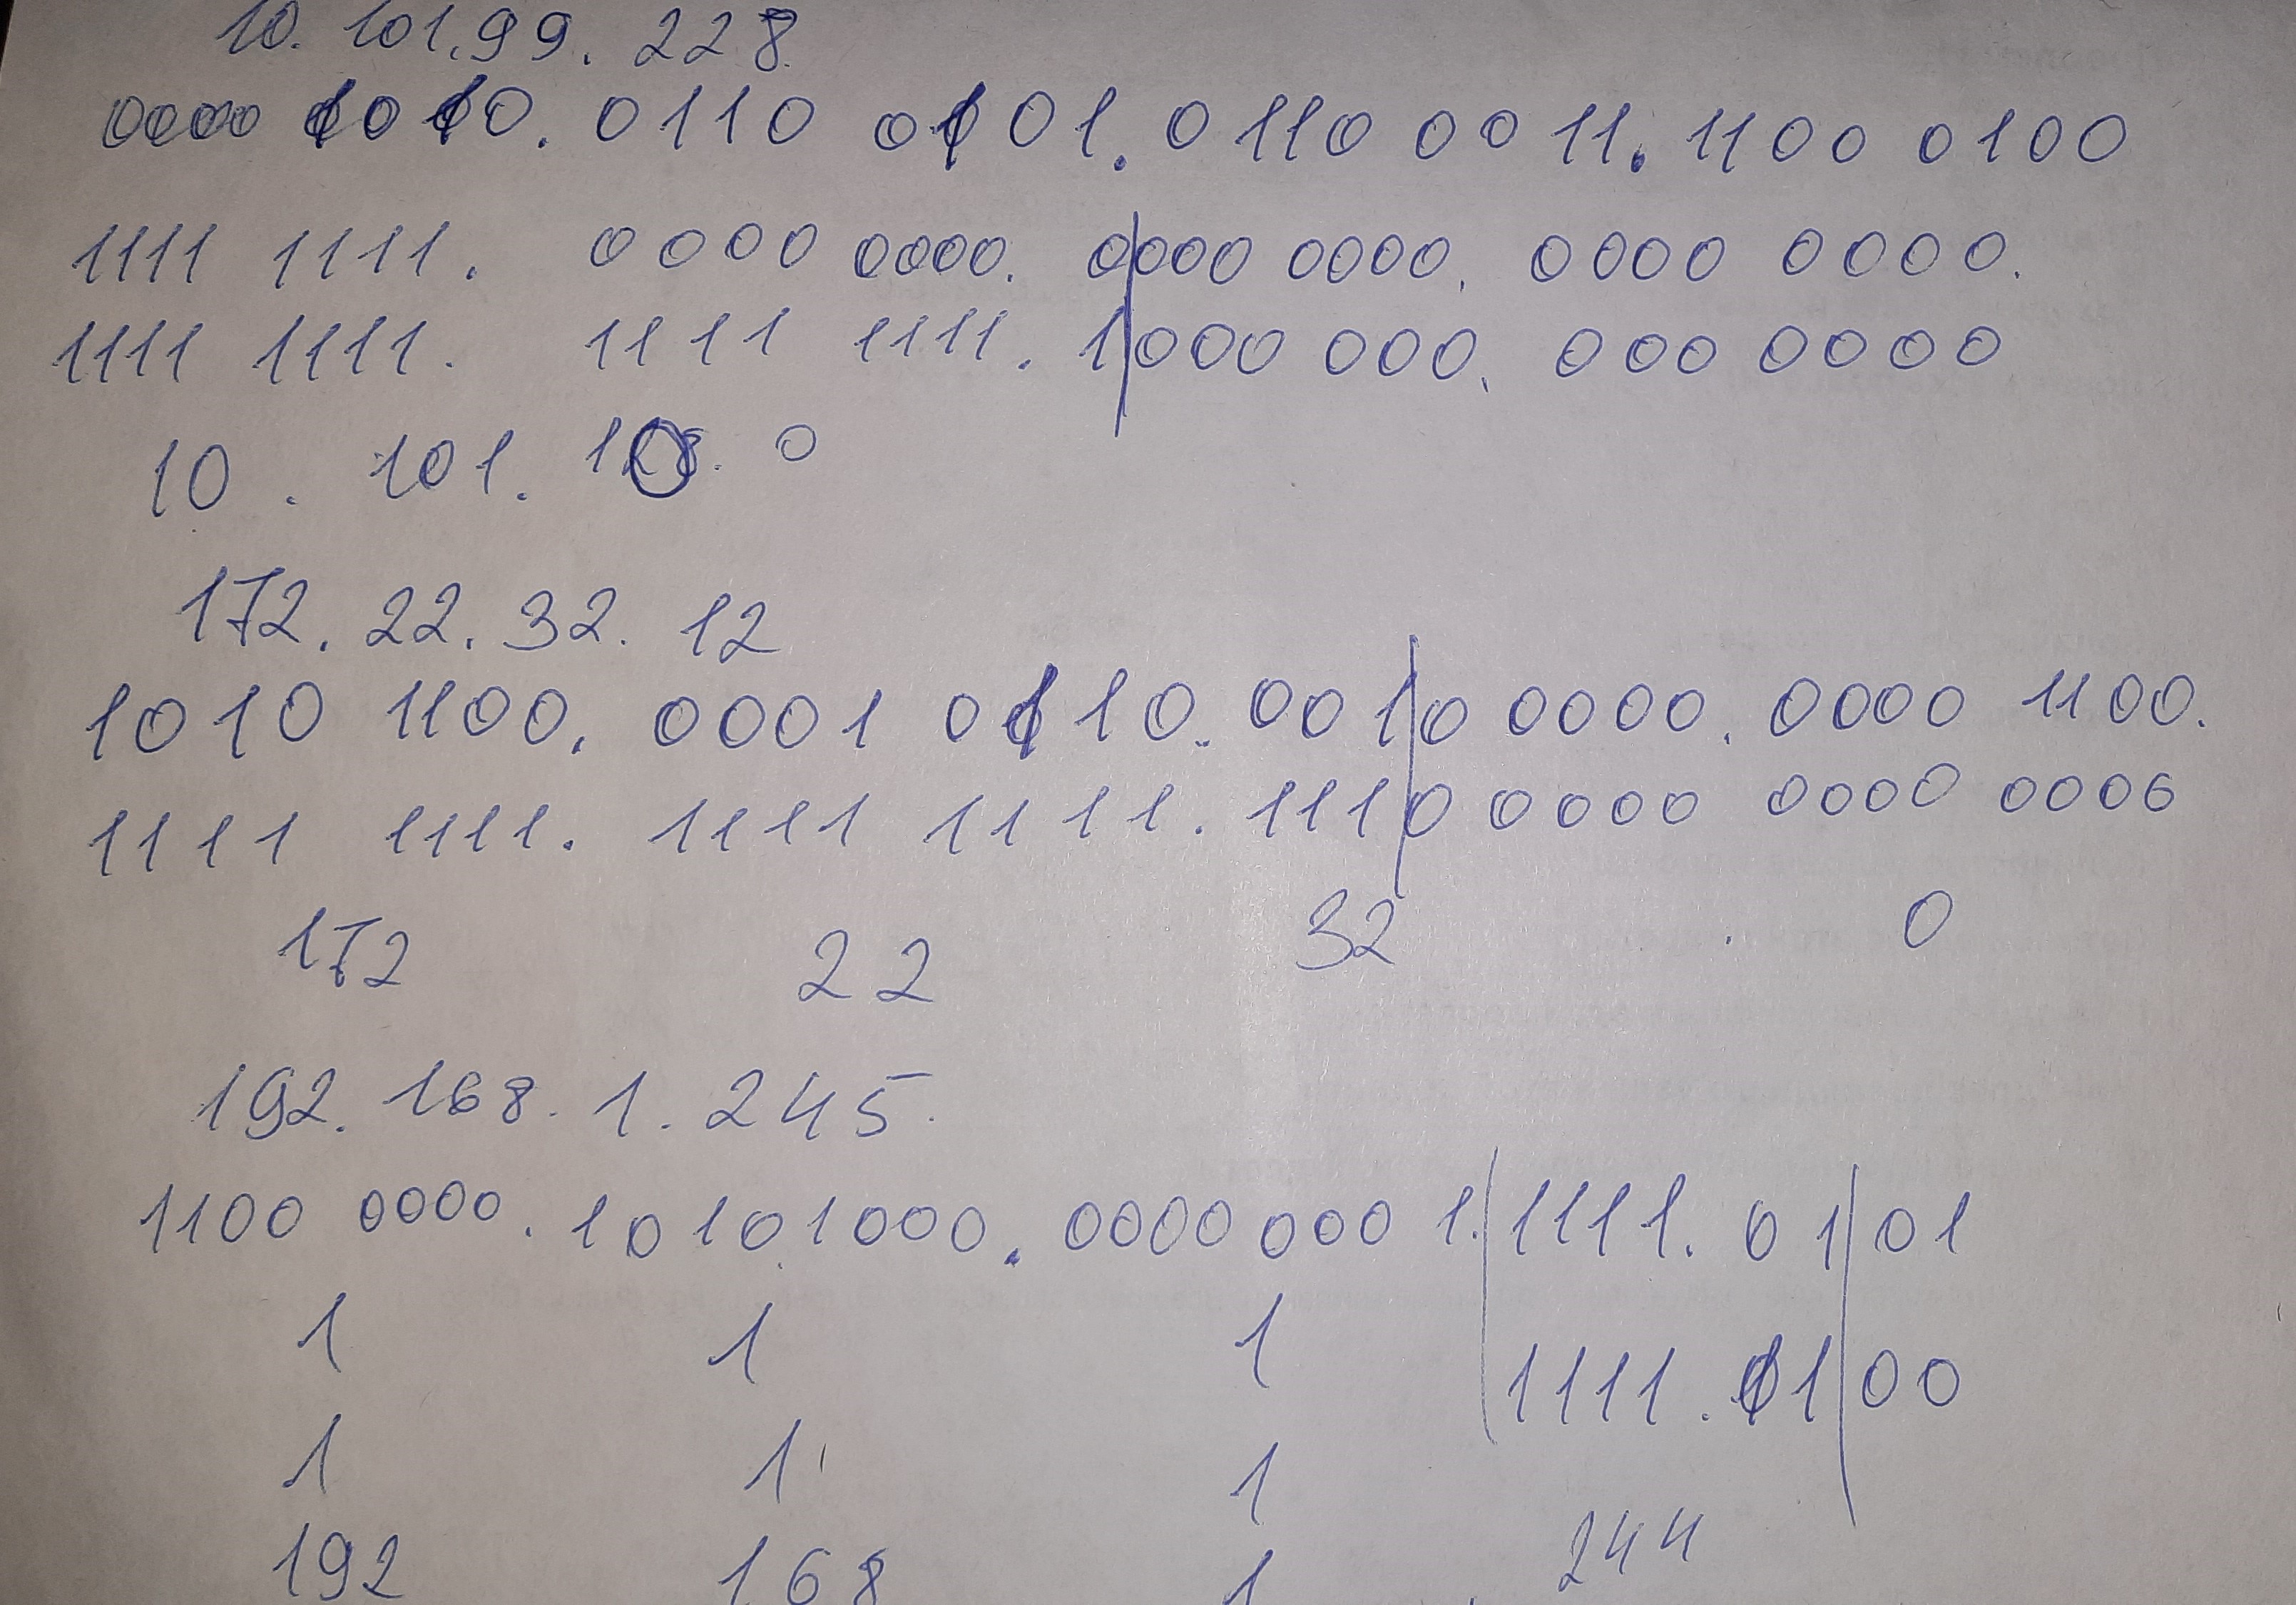 10. 101. 99. 228.
0000 1010. 0110 0101. 0110 0011. 1100 0100
1111 1111. 0000 0000. 0000 0000. 0000 0000.
1111 1111. 1111 1111. 1000 000. 000 0000
10. 101. 0. 0
172. 22. 32. 12
1010 1100. 0001 0110. 0010 0000. 0000 1100.
1111 1111. 1111 1111. 1110 0000 0000 0000
172 22 32 . 0
192. 168. 1. 245.
1100 0000. 1010.1000. 0000 0001. 1111. 0101
1 1 1 1111. 1100
1 1 1
192 168 1 . 244